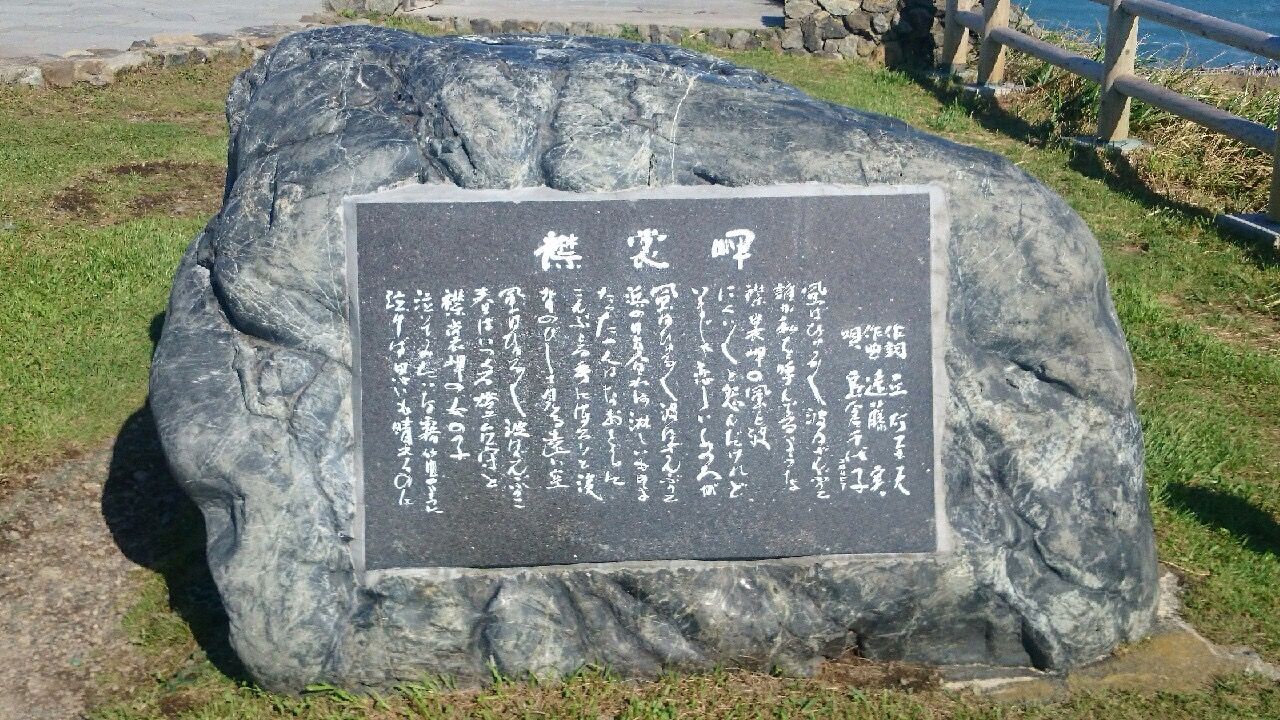 襟裳岬
作詞 丘灯至夫
作曲 遠藤 実
唄 島倉千代子
風はひゅるひゅる 波はざんぶりこ
誰か私を呼んでるような
襟裳岬の風と波
にくいにくいと怨んだけれど
いまじゃ恋しいあの人が
風はひゅるひゅる 波はざんぶりこ
浜の日暮れは淋しい
たった一人はなおさらに
こんぶとる手にほろりと涙
せのびし見る遠い空
風はひゅるひゅる 波はざんぶりこ
春はいつくる燈台守と
襟裳岬の女の子
泣いてみたいな鴎のように
泣けば思いも晴れるのに